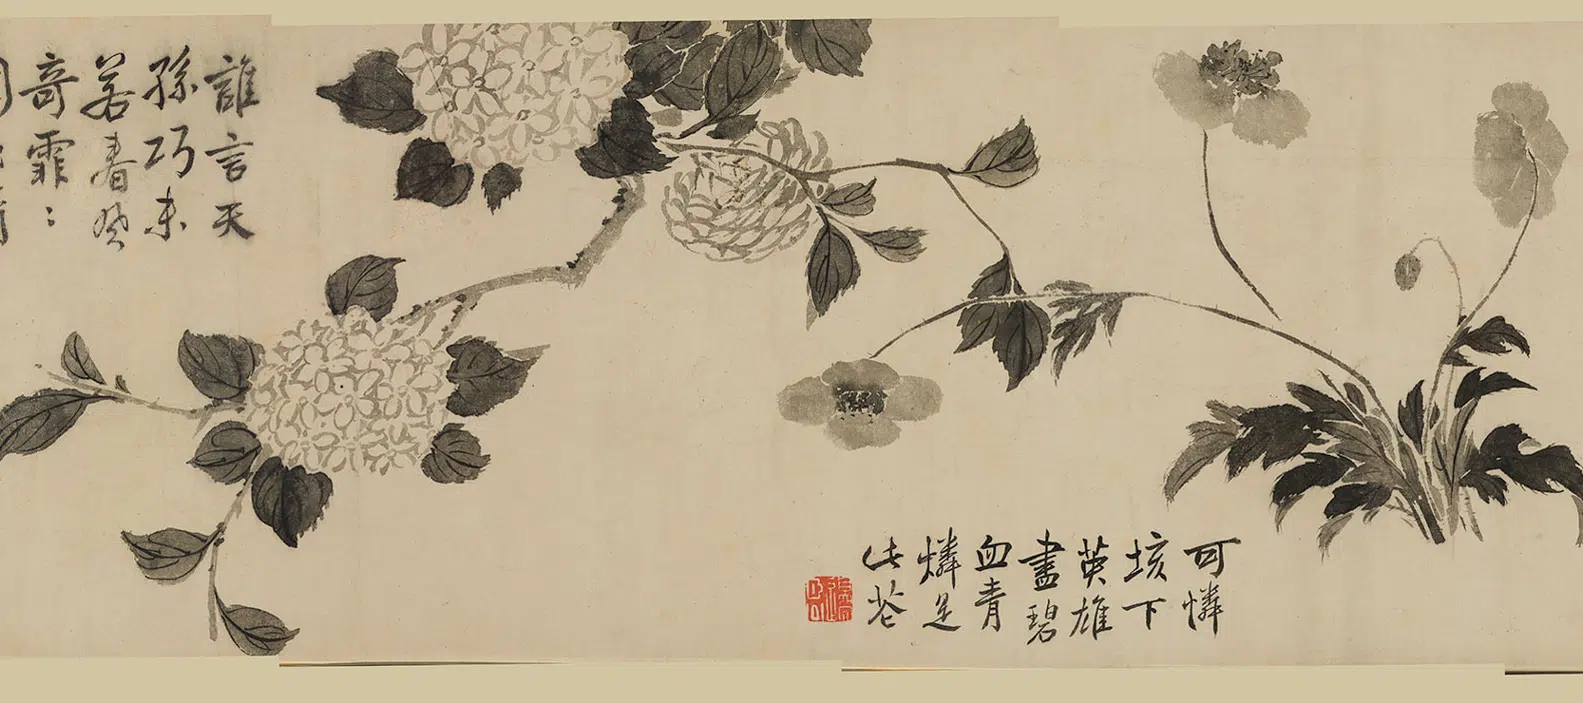 可憐
垓下
英雄
盡碧
血青
燐是
此花
誰言天
孫巧未
若春
奇霏〻